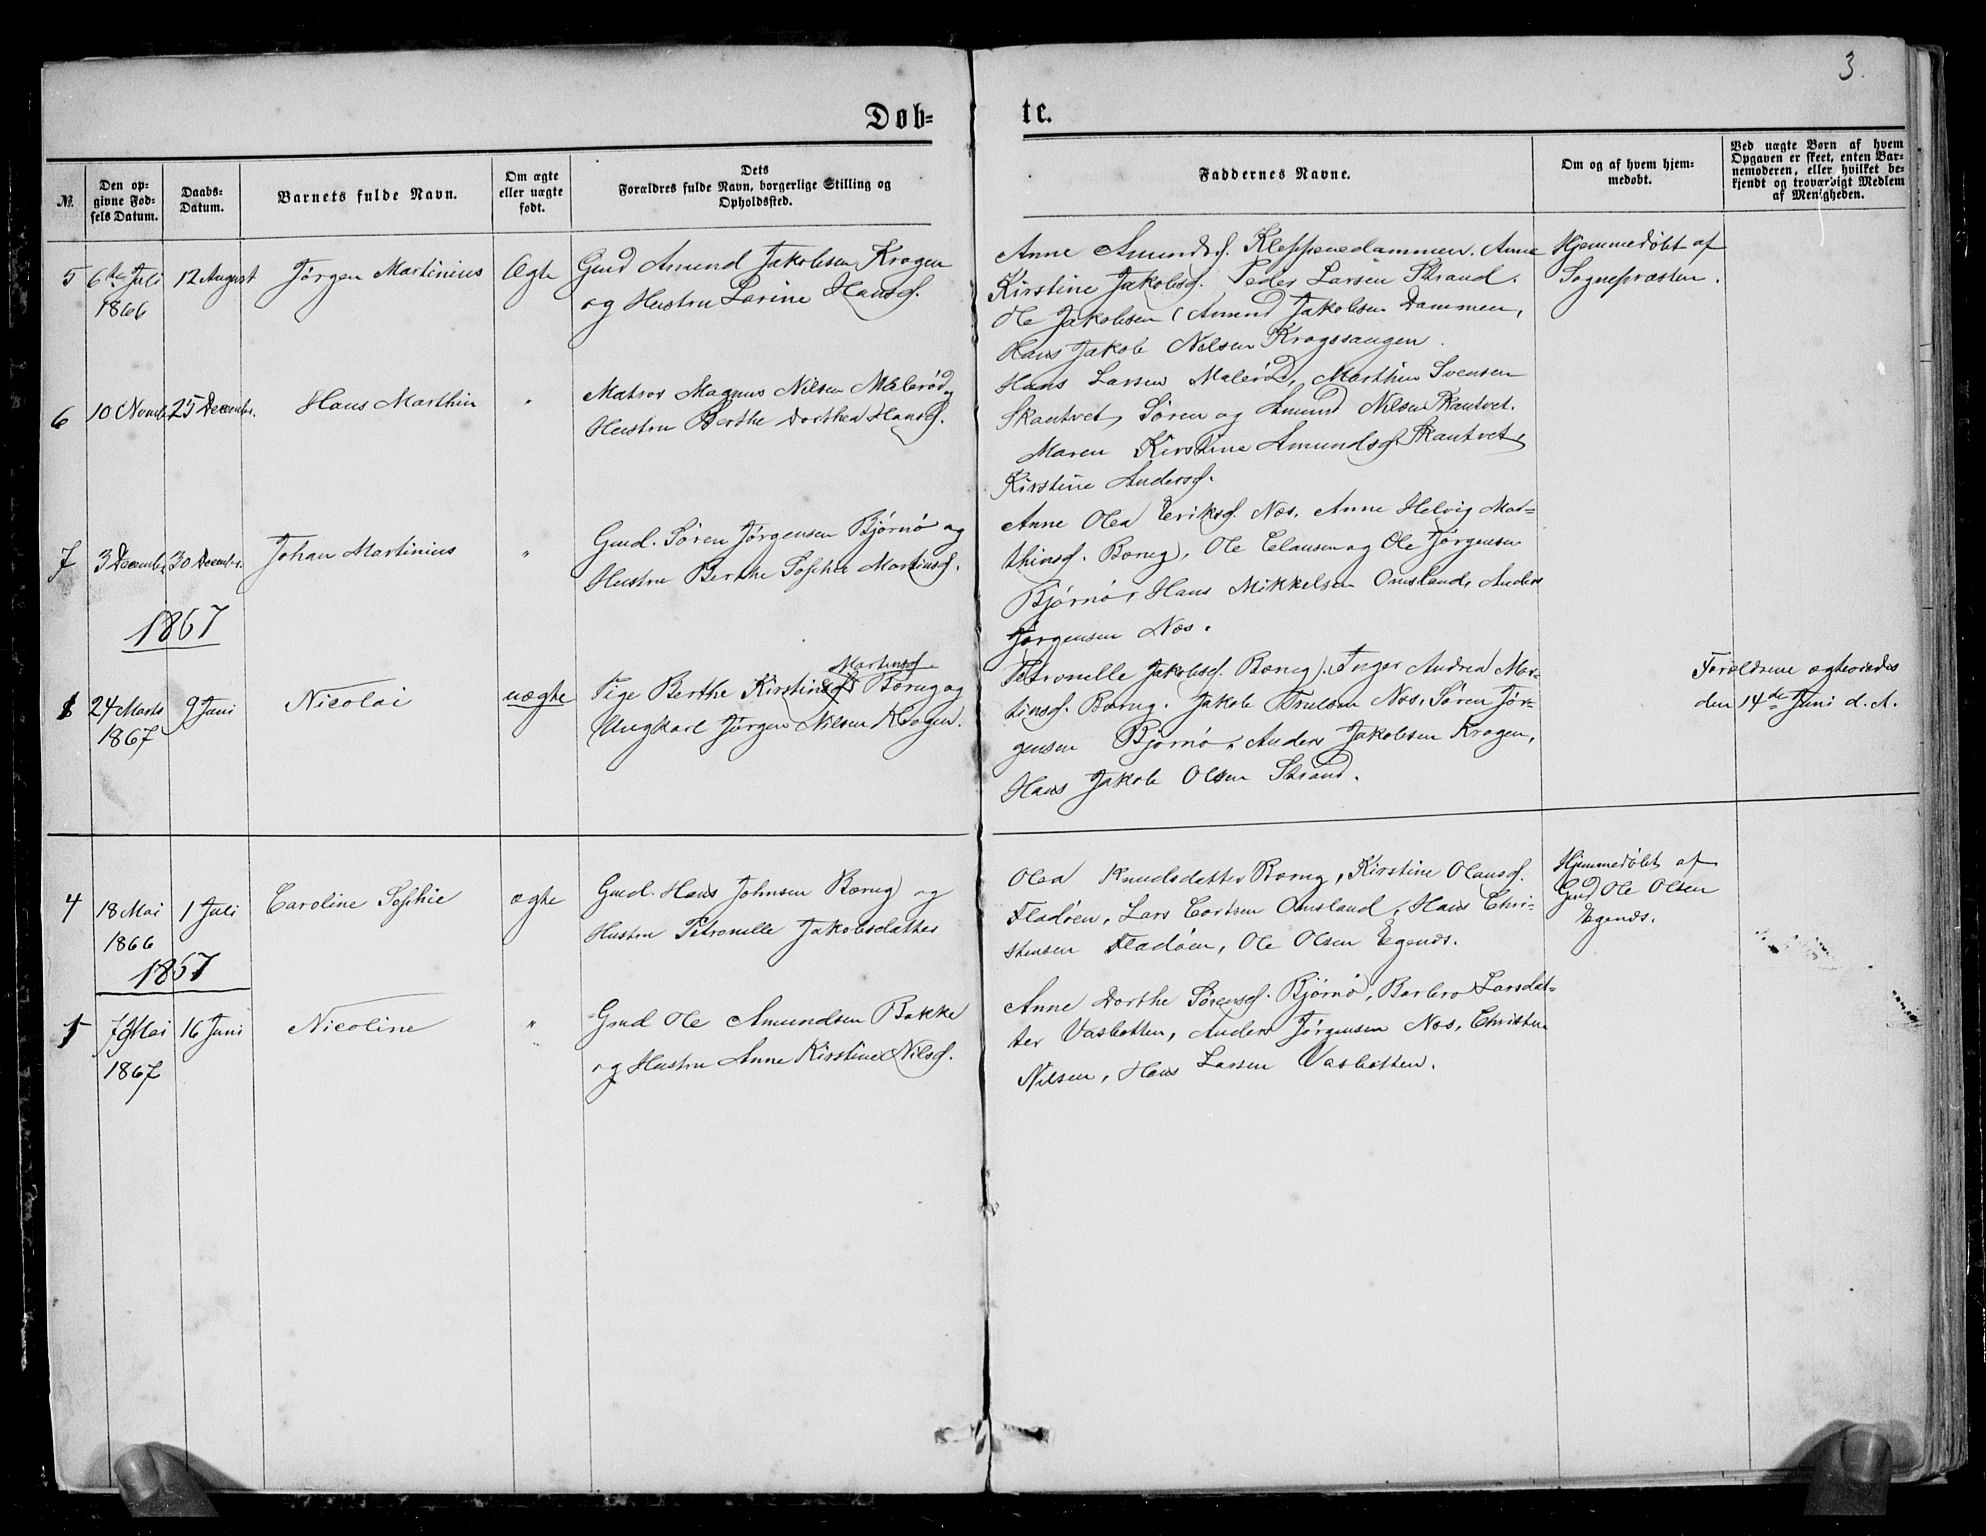 3.
Døb=
te.
№.
Den op-
givne Fød-
sels Datum.
Daabs-
Datum.
Barnets fulde Navn.
Om ægte
eller uægte
født.
Dets
Forældres fulde Navn, borgerlige Stilling og
Opholdssted.
Faddernes Navne.
Om og af hvem hjem-
medøbt.
Ved uægte Børn af hvem
Opgaven er skeet, enten Bar-
nemoderen, eller hvilket be-
kjendt og troværdigt Medlem
af Menigheden.
5 6te Juli 12 August Jørgen Martinius Ægte Gmd Amund Jakobsen Krogen
1866 og Hustru Larine Hansd.
Anne Amundsd. Kleppenedammen. Anne
Kirstine Jakobsd. Peder Larsen Strand.
Ole Jakobsen (Amund Jakobsen Dammen,
Hans Jakob Nilsen Krogssaugen.
Hjemmedøbt af
Sognepræsten.
6 10 Novmb. 25 December. Hans Marthin " Matros Magnus Nilsen Mælerød og
Hustru Berthe Dorthea Hansd.
Hans Larsen Malerød, Marthin Svensen
Skantvet, Søren og Amund Nilsen Skantvet.
Maren Kirstine Amundsd Skantvet,
Kirstine Andersd.
7 3 December 30 December. Johan Martinius " Gmd. Søren Jørgensen Bjørnø og
Hustru Berthe Sophie Martinsd.
Anne Olea Eriksd. Næs, Anne Helvig Mar-
thinsd. Borug), Ole Clausen og Ole Jørgensen
Bjørnø, Hans Mikkelsen Omsland, Anders
Jørgensen Næs.
1867
1 24 Marts 9 Juni Nicolai uægte Pige Berthe Kirstine Martinsd Borug og
1867 Ungkarl Jørgen Nilsen Krogen.
Petronelle Jakobsd. Borug). Inger Andrea Mar-
tinsd. Borug. Jakob Truelsen Næs, Søren Jør-
gensen Bjørnø, Anders Jakobsen Krogen,
Hans Jakob Olsen Strand.
Forældrene ægteviedes
den 14de Juni d. A.
4 18 Mai 1 Juli Caroline Sophie ægte Gmd. Hans Johnsen Borug) og
1866 Hustru Petronelle Jakobsdatter
Olea Knudsdatter Borug, Kirstine Olausd.
Fladøen, Lars Cortsen Omsland, Hans Chri-
stensen Fladøen, Ole Olsen Egends.
Hjemmedøbt af
Gmd Ole Olsen
Egends.
1867
1 7 Mai 16 Juni Nicoline " Gmd Ole Amundsen Bakke
1867 og Hustru Anne Kirstine Nilsd.
Anne Dorthe Sørensd. Bjørnø, Barbro Larsdat-
ter Vasbotten, Anders Jørgensen Næs, Christen
Nilsen, Hans Larsen Vasbotten.